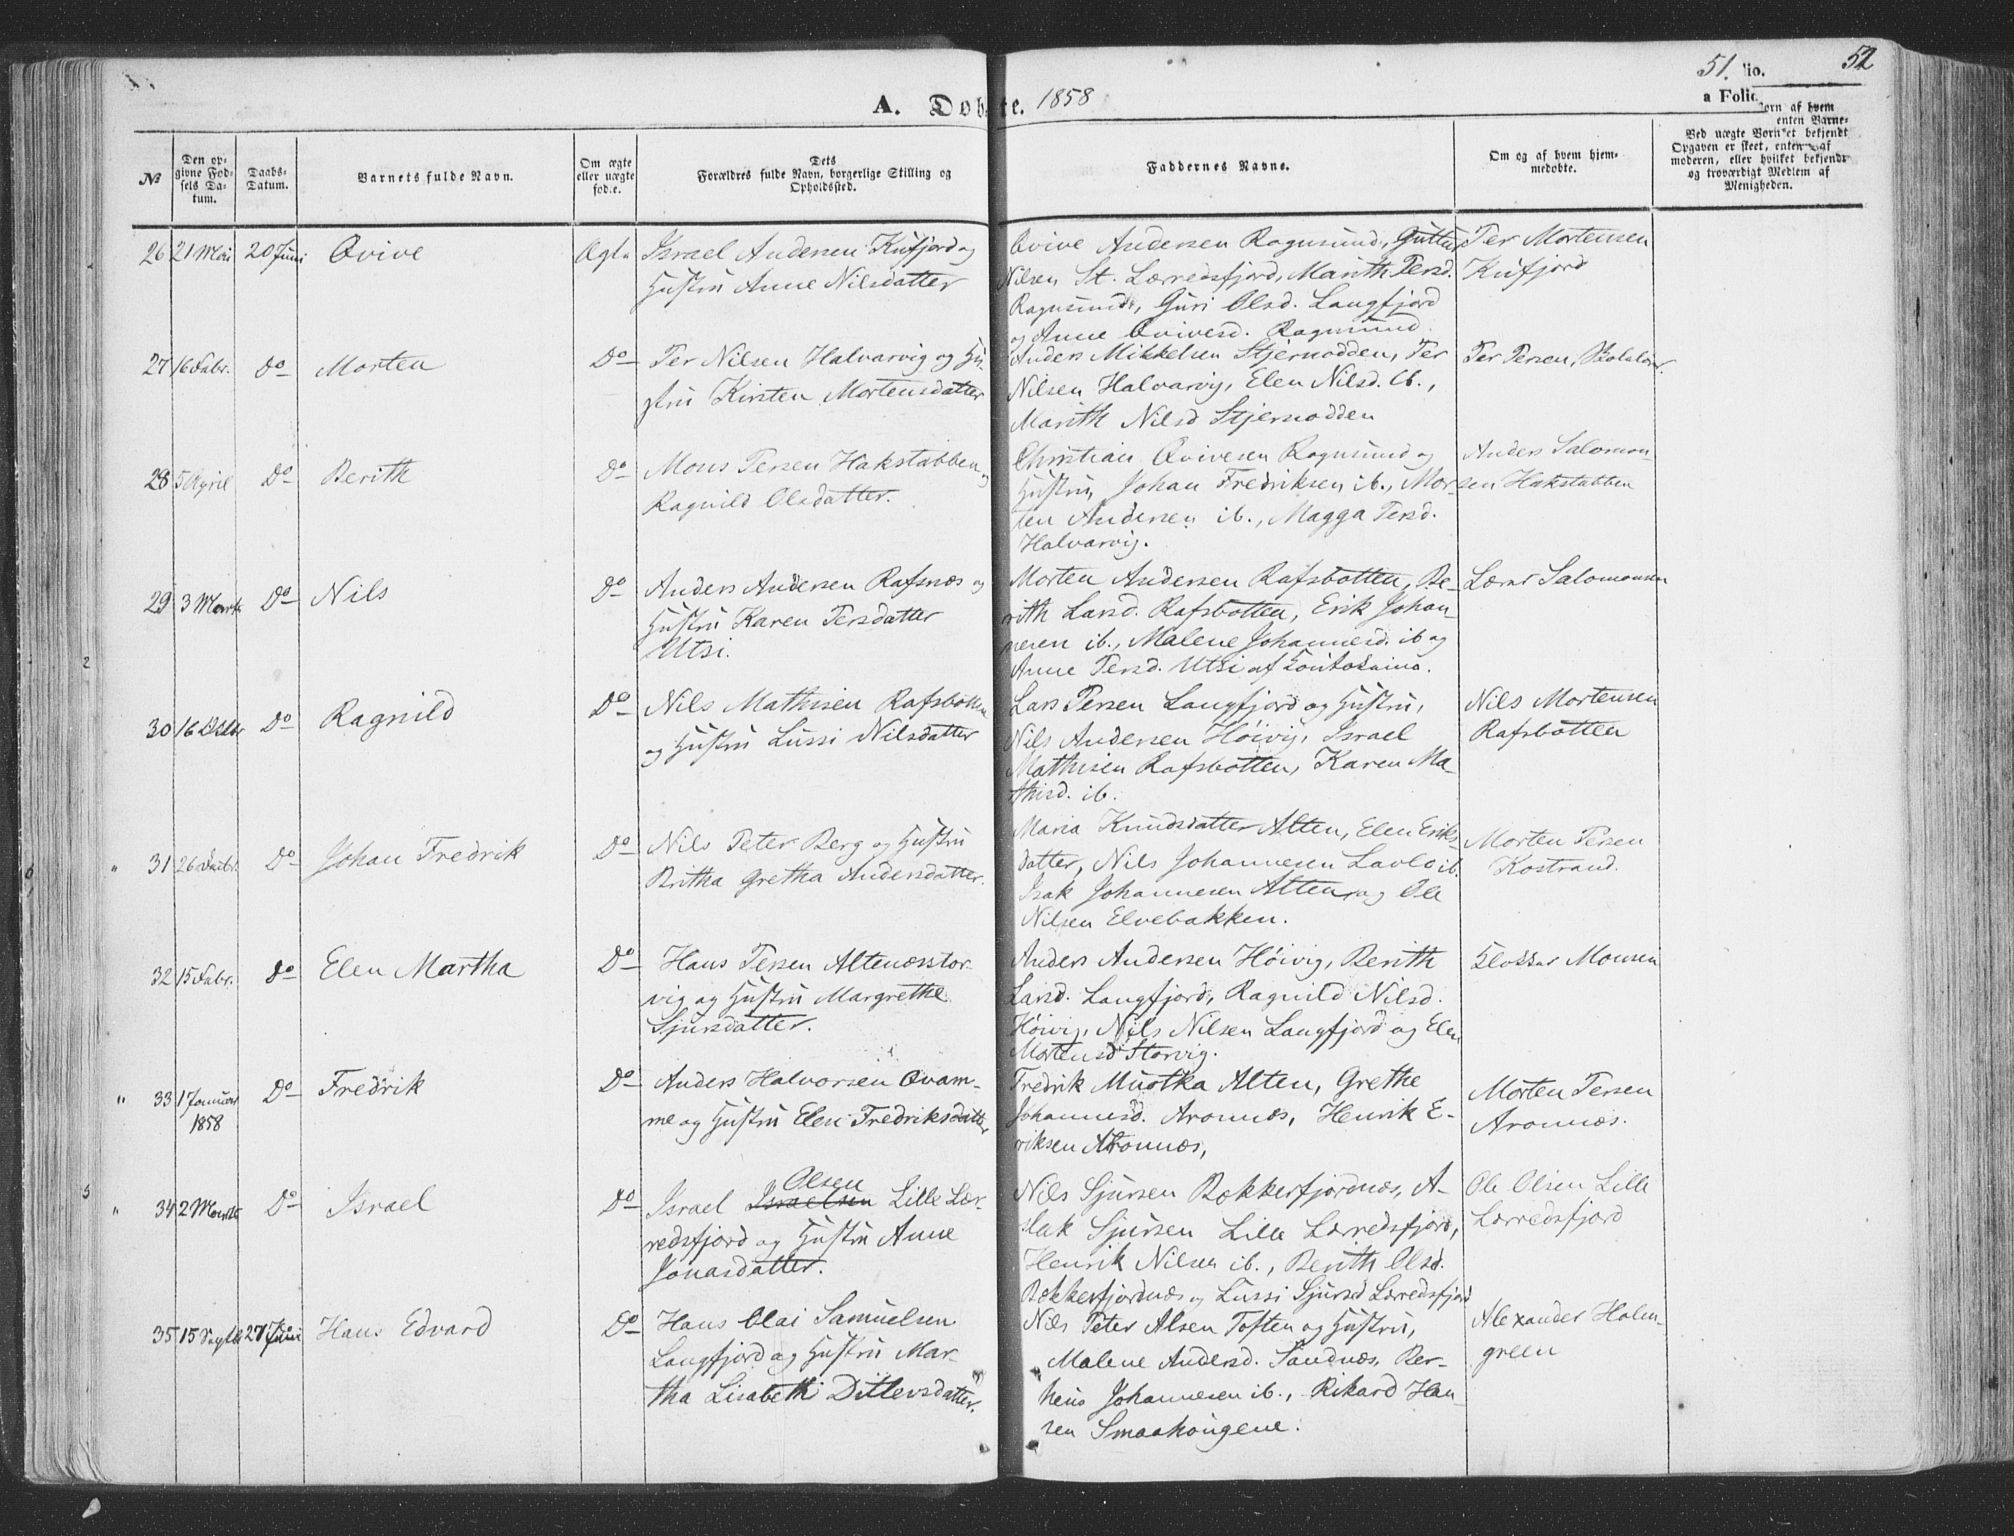 51.
52
lio.
a Folio
A. Døbte. 1858
No
Den op-
givne Fød-
sels Da-
tum.
Daabs-
Datum.
Barnets fulde Navn.
Om ægte
eller uægte
fød.e.
Dets
Forældres fulde Navn, borgerlige Stilling og
Opholdssted.
Faddernes Navne.
Om og af hvem hjem-
medøbte.
orn af hvem
enten Barne-
Ved uægte Born et bekjendt
Opgaven er skeet, enten af
moderen, eller hvilket bekjendt
og troværdigt Medlem af
Menigheden.
26 21 Mai 20 Juni Qvive Ægte
Israel Andersen Kufjord og
Hustru Anne Nilsdatter
Qvive Andersen Rognsund, Guttur
Nilsen St. Lærredsfjord, Marith Persd.
Rognsund, Guri Olsd. Langfjord
og Anne Qvivesd. Rognsund.
Per Mortensen
Kufjord
27 16 Febr. Do Morten Do
Per Nilsen Halvarvig og Hu-
stru Kirsten Mortensdatter
Anders Mikkelsen Stjernodden, Per
Nilsen Halvarvig, Elen Nilsd. ib.,
Marith Nilsd Stjernodden
Per Persen,
28 5 April Do Berith Do
Mons Persen Hakstabben og
Ragnild Olsdatter.
Christian Qvivesen Rognsund og
Hustru, Johan Fredriksen ib., Mor-
ten Andersen ib., Magga Persd.
Halvarvig.
Anders Salomon-
sen Hakstabben
29 3 Marts Do Nils Do
Anders Andersen Rafsnæs og
Hustru Karen Persdatter
Utsi.
Morten Andersen Rafsbotten, Be-
rith Larsd. Rafsbotten, Erik Johan-
nesen ib., Malene Johannesd. ib og
Anne Persd. Utsi af Koutokeino.
Lærer Salomonsen
30 16 Do Ragnild Do
Nils Mathisen Rafsbotten
og Hustru Lussi Nilsdatter
Lars Persen Langfjord og Hustru,
Nils Andersen Höivig, Israel
Mathisen Rafsbotten, Karen Ma-
thisd. ib.
Nils Mortensen
Rafsbotten
" 31 26 Febr. Do Johan Fredrik Do
Nils Peter Berg og Hustru
Britha Gretha Andersdatter.
Maria Knudsdatter Alten, Elen Eriks
datter, Nils Johannesen Lavlo ib.
Isak Johannesen Alten, og Ole
Nilsen Elvebakken.
Morten Persen
Kostrand.
32 15 Febr. Do Elen Martha Do
Hans Persen Altenæsstor-
vig og Hustru Margrethe
Sjursdatter.
Anders Andersen Höivig, Berith
Larsd. Langfjord, Ragnild Nilsd.
Höivig, Nils Nilsen Langfjord og Elen
Mortensd Storvig.
Klokker Monsen
" 33 1 Januar Do Fredrik Do
1858
Anders Halvorsen Qvam-
me og Hustru Elen Fredriksdatter
Fredrik Muotka Alten, Grethe
Johannesd. Aronnæs, Henrik E-
riksen Aronnæs,
Morten Persen
Aronnæs.
" 34 2 Marts Do Israel Do
Olsen
Israel Israelsen Lille Lær-
redsfjord og Hustru Anne
Jonasdatter.
Nils Sjursen Bekkerfjordnæs, A-
slak Sjursen Lille Lærredsfjord,
Henrik Nilsen ib., Berith Olsd.
Bekkerfjordnæs og Lussi Sjursd Lærredsfjord
Ole Olsen Lille
Lærredsfjord
35 15 Septb 27 Juni Hans Edvard Do
Hans Olai Samuelsen
Langfjord og Hustru Mar-
tha Lisabeth Ditlevsdatter.
Nils Peter Alsen Toften og Hustru,
Malene Andersd. Sandnæs, Ber-
heus Johannesen ib., Rikard Han-
sen Smaahougene.
Alexander Holm-
green